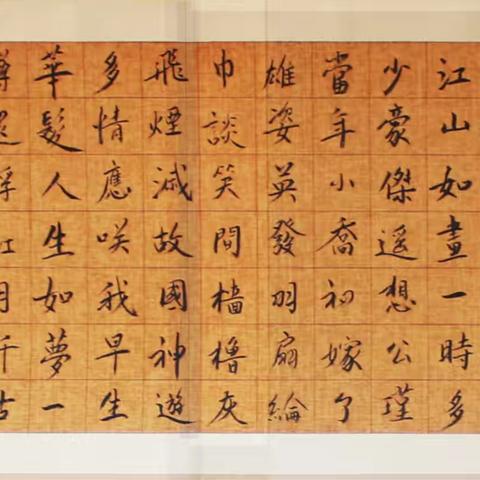 江山如畫一時多
少豪傑遥想公瑾
當年小喬初嫁了
雄姿英發羽扇綸
巾談笑間檣櫓灰
飛煙滅故國神遊
多情應咲我早生
華髮人生如夢一
月千古